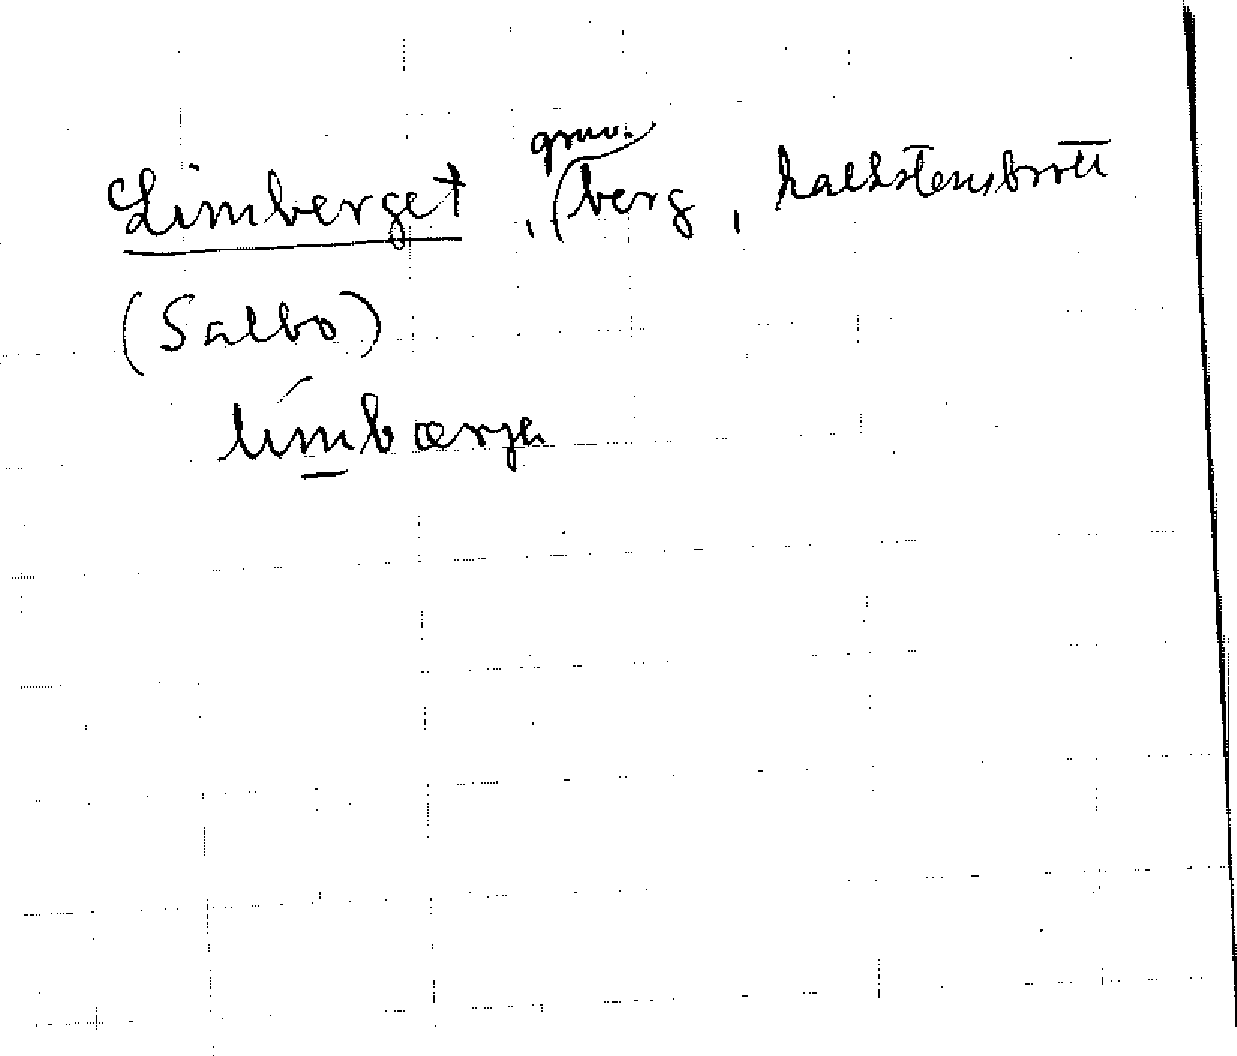 Limberget, gruv. berg, kalkstensbrott
(Salbo)
limbærje